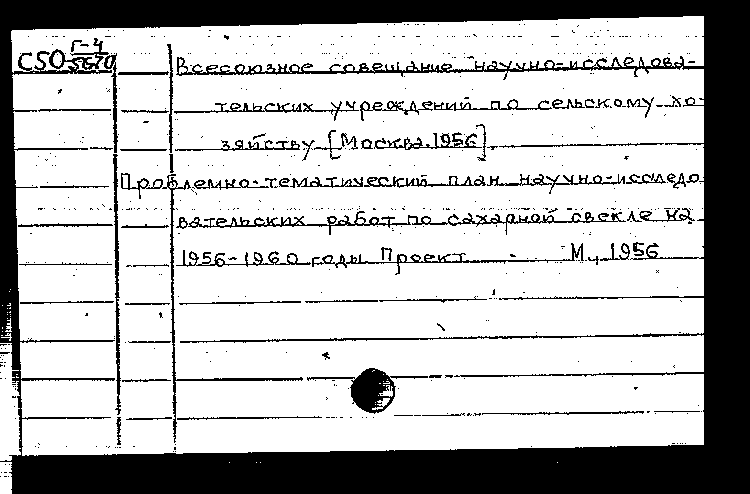 CSO Г-4
5670
Всесоюзное совещание научно-исследова-
тельских учреждений по сельскому хо-
зяйству [Москва.1956].
Проблемно-тематический план научно-исследо
вательских работ по сахарной свекле на
1956-1960 годы Проект М., 1956